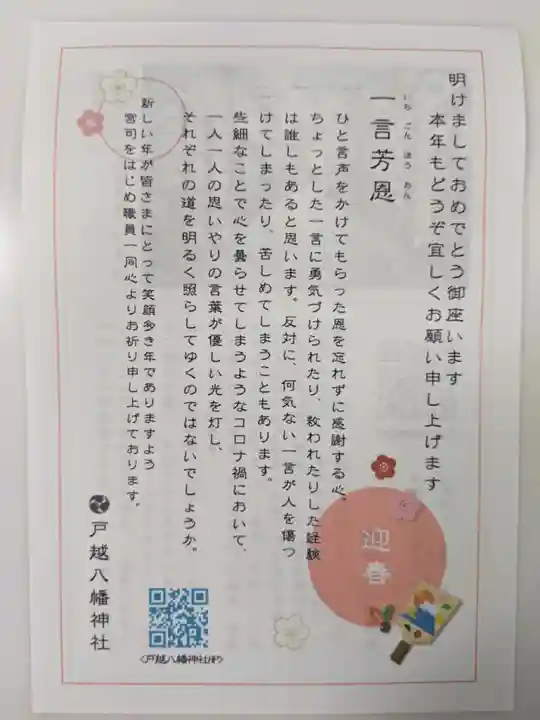 明けましておめでとう御座います
本年もどうぞ宜しくお願い申し上げます
一言芳恩
いちごんほうおん
ひと言声をかけてもらった恩を忘れずに感謝する心。
ちょっとした一言に勇気づけられたり、救われたりした経験
は誰しもあると思います。反対に、何気ない一言が人を傷つ
けてしまったり、苦しめてしまうこともあります。
些細なことで心を曇らせてしまうようなコロナ禍において、
一人一人の思いやりの言葉が優しい光を灯し、
それぞれの道を明るく照らしてゆくのではないでしょうか。
新しい年が皆さまにとって笑顔多き年でありますよう
宮司をはじめ職員一同心よりお祈り申し上げております。
戸越八幡神社
迎春
<戸越八幡神社HP>